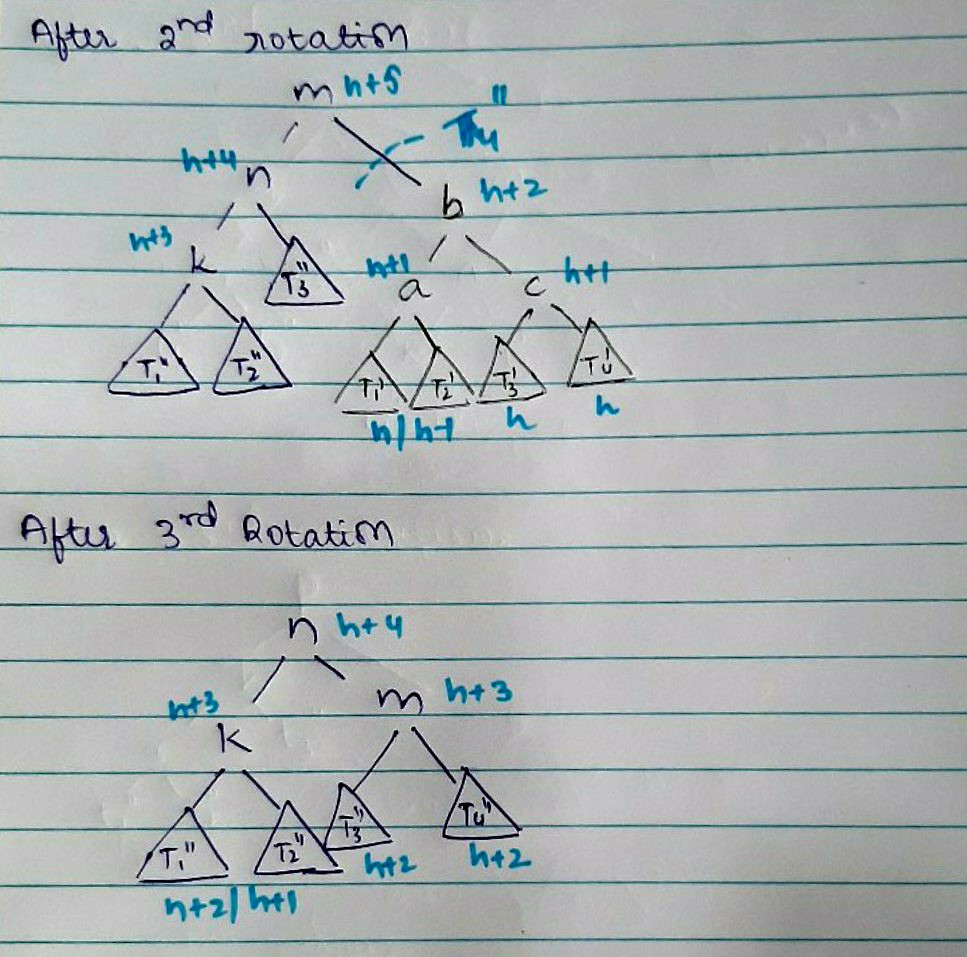 After 2nd rotation
m h+5
T4"
h+4 n
b h+2
h+3 k
T3"
h+1 a
c h+1
T1" T2"
T1' T2' T3' T4'
h/h-1 h h
After 3rd Rotation
n h+4
h+3 k
m h+3
T1" T2" T3" T4"
h+2 h+2
h+2/h+1